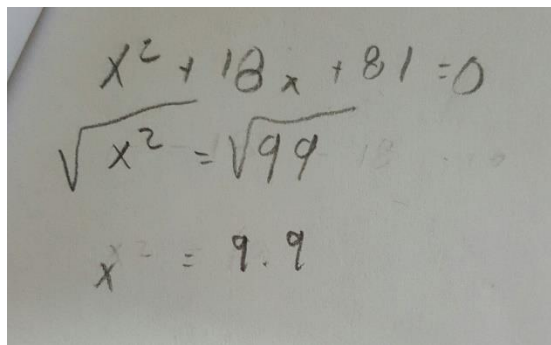 x² + 18x + 81 = 0
√x² = √99
x = 9.9